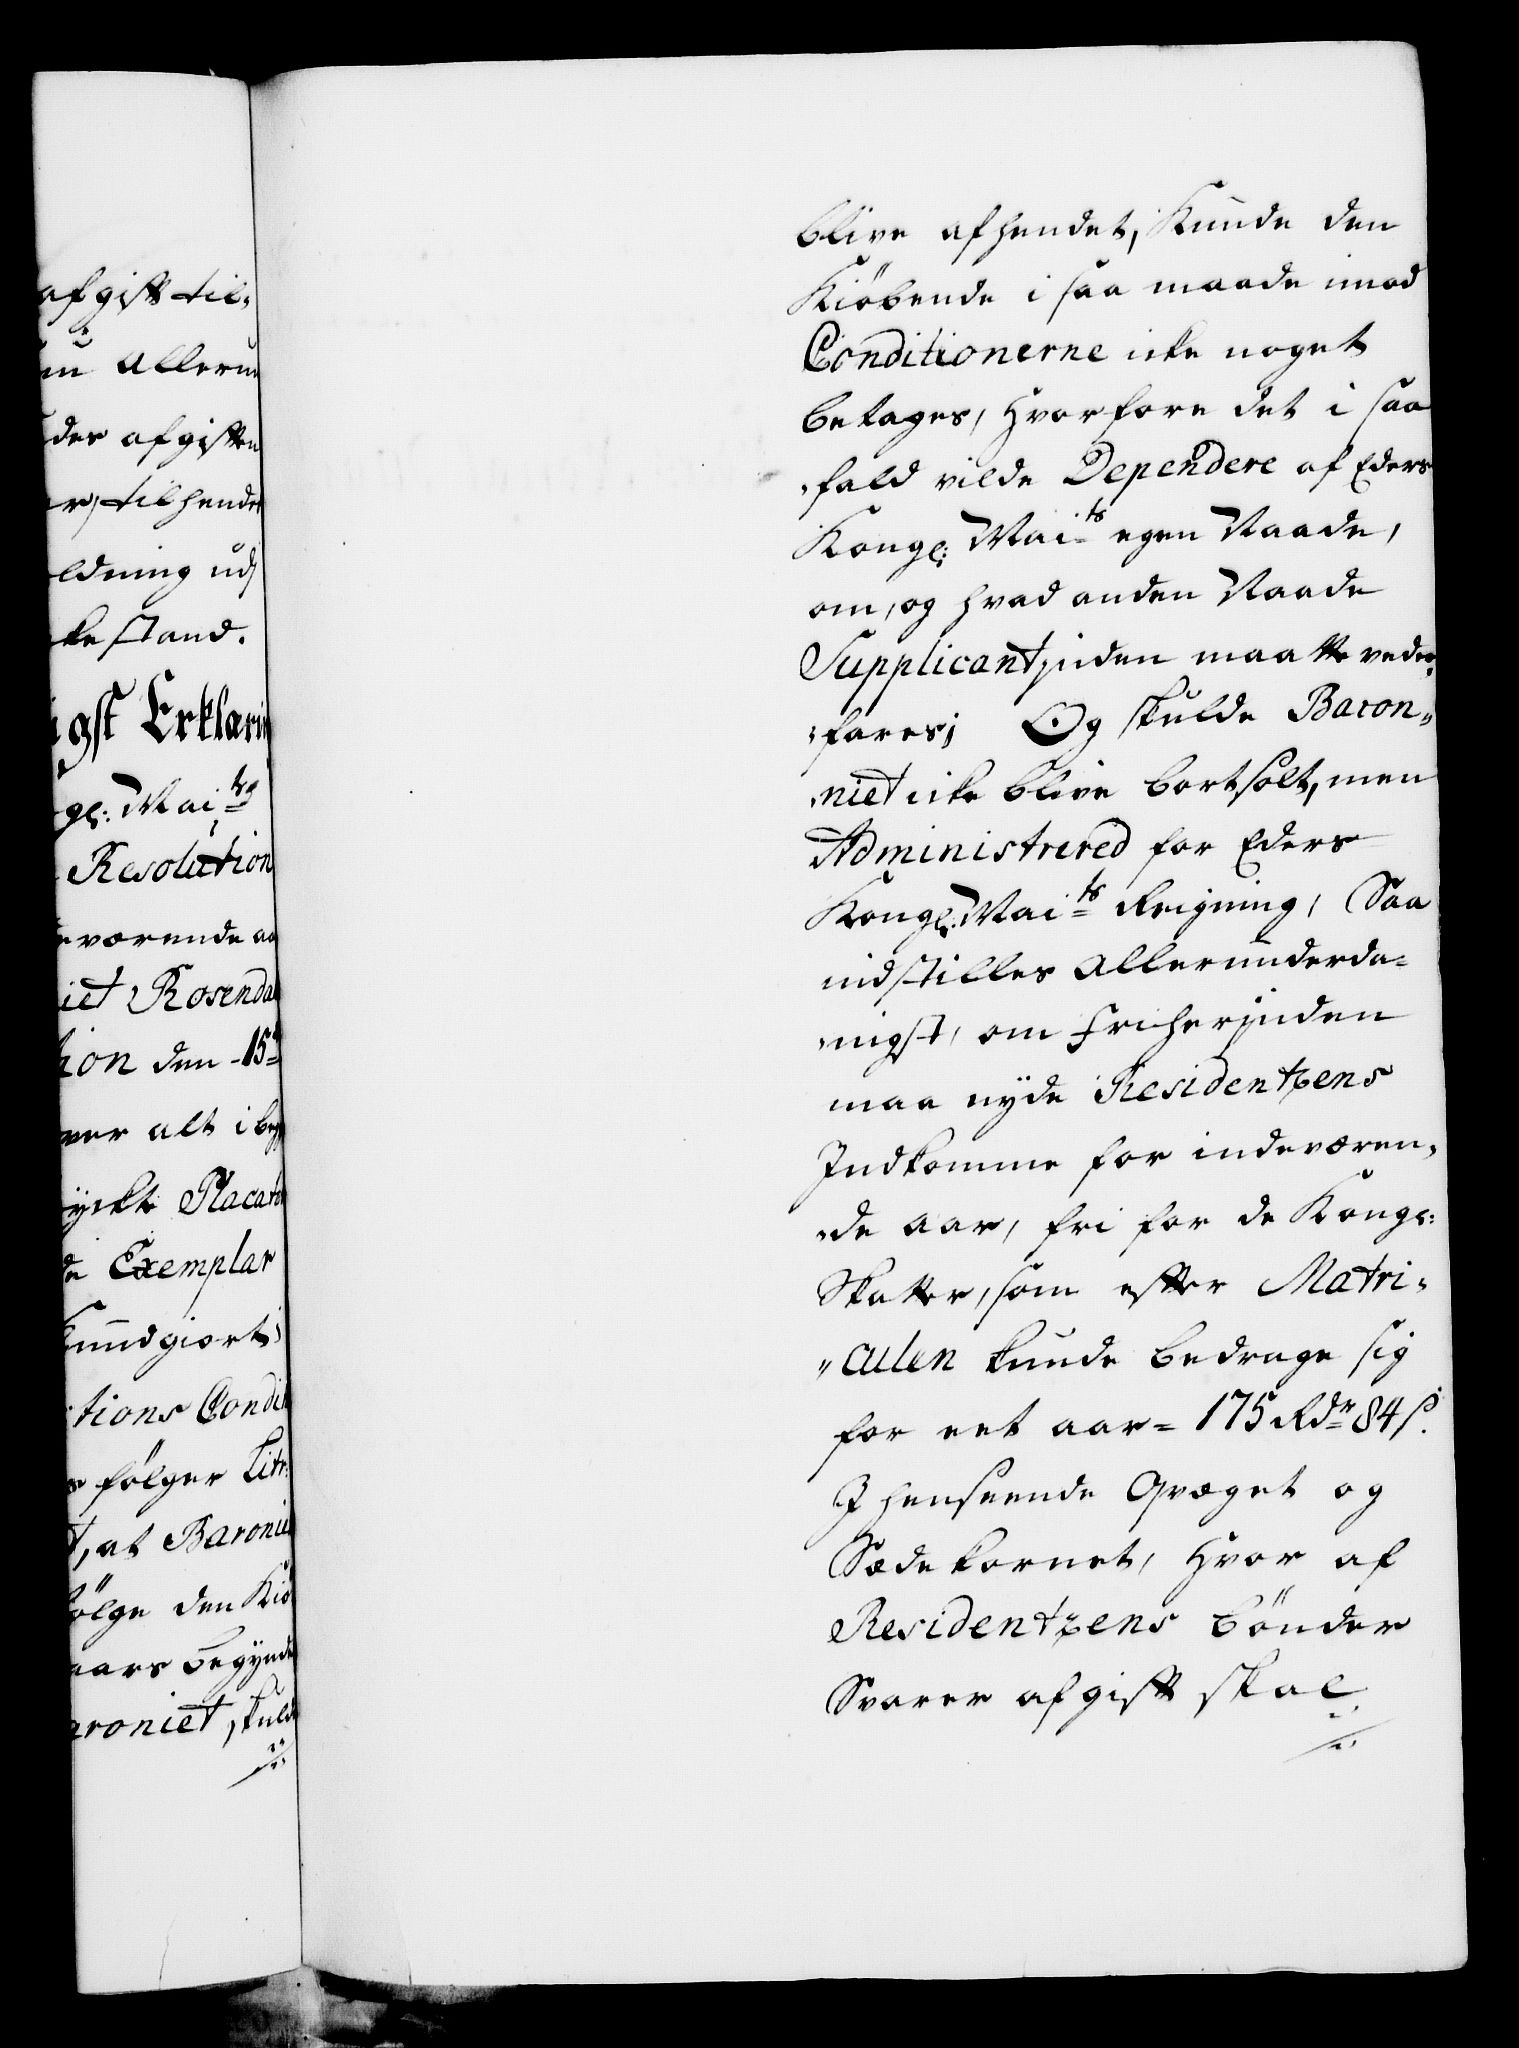 afgift til-
nu allerun
der afgiften
r, tilhende
ldning udj
ke stand.
igst Erklarin
gl: Mai.ts
Resolution
eværende aa
iet Rosenda
tion den 15de
ver alt i beg
ÿckte Placate
de Exemplar
kundgiort,
tions Condit
s følger Litr:
t, at Baronie
følge den Kiø
aars begynde
aroniet skuld
blive afhendet, Kunde den
Kiöbende i saa maade imod
Conditionerne icke noget
betages, hvorfore det i saa
fald vilde Dependere af Eders
Kongl: Mai.ts egen Naade,
om, og hvad anden Naade
Supplicantjnden maatte veder-
fares; Og skulde Baron-
niet icke blive bortsolt, men
Administrered for Eders
Kongl: Mai.ts Reigning, Saa
indstilles allerunderda-
nigst, om Friherjnden
maa nÿde Residentzens
Indkomme for indeværen-
de aar, fri for de Kongl:
Skatter, som efter Matri-
culen kunde bedrage sig
for eet aar = 175 Rdr 84 s.
I henseende Qvæget og
Sædekornet, hvor af
Residentzens bönder
Svarer afgift skal